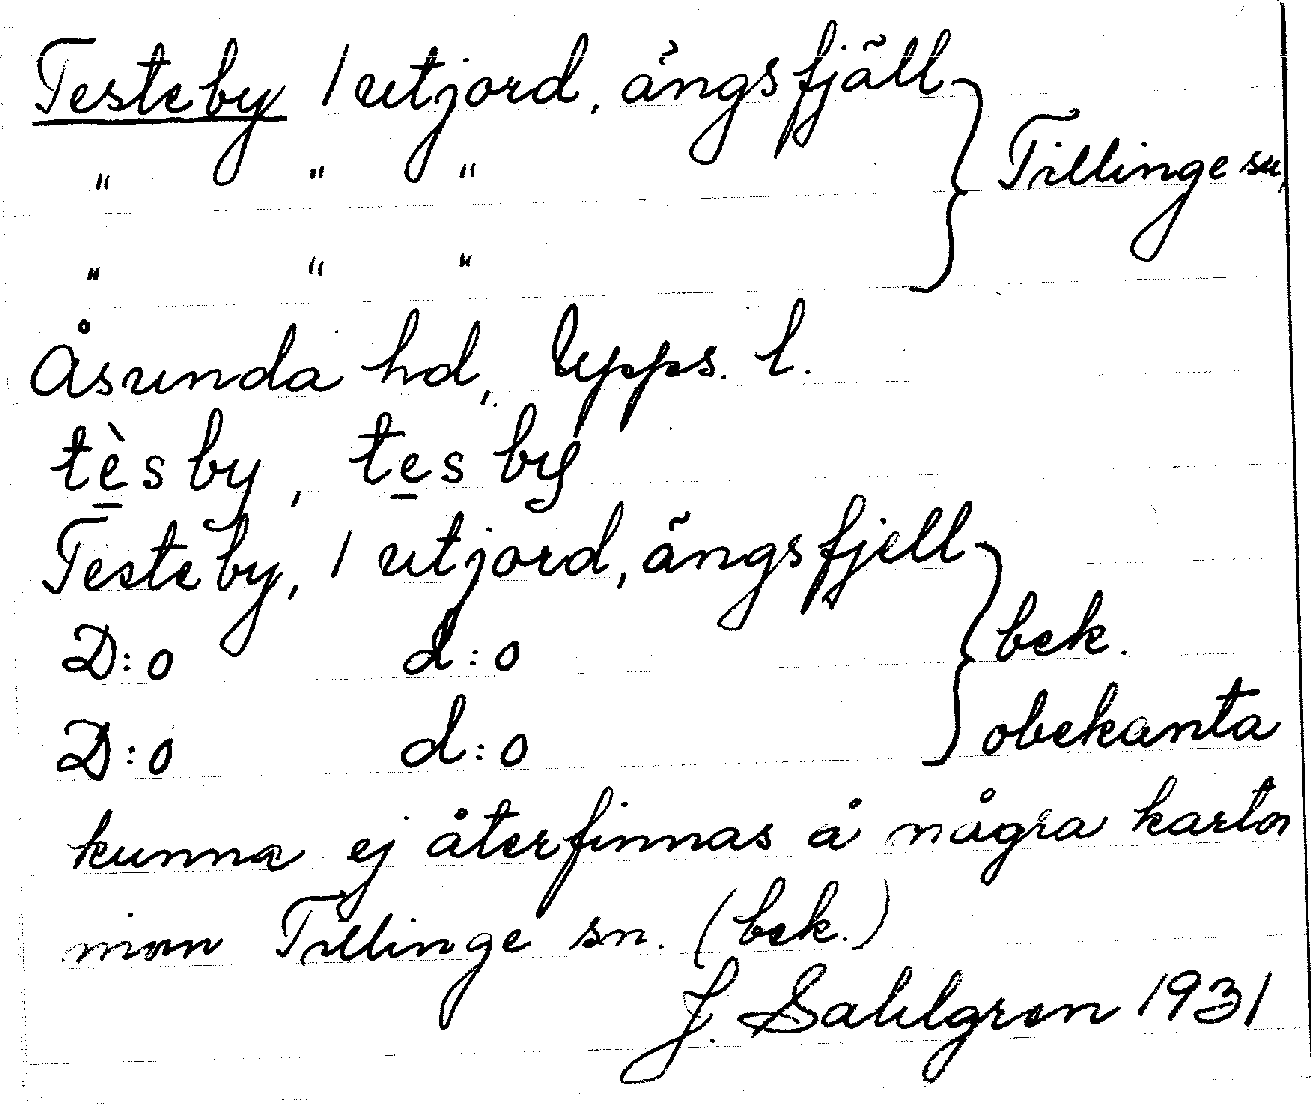 Testeby 1 utjord, ängsfjäll
" " " Tillinge sn,
" " "
Åsunda hd, Upps. l.
tèsby, tesby
Testeby, 1 utjord, ängsfjell
D:o d:o bek.
D:o d:o obekanta
kunna ej återfinnas å några kartor
inom Tillinge sn. (bek.)
J. Sahlgren 1931